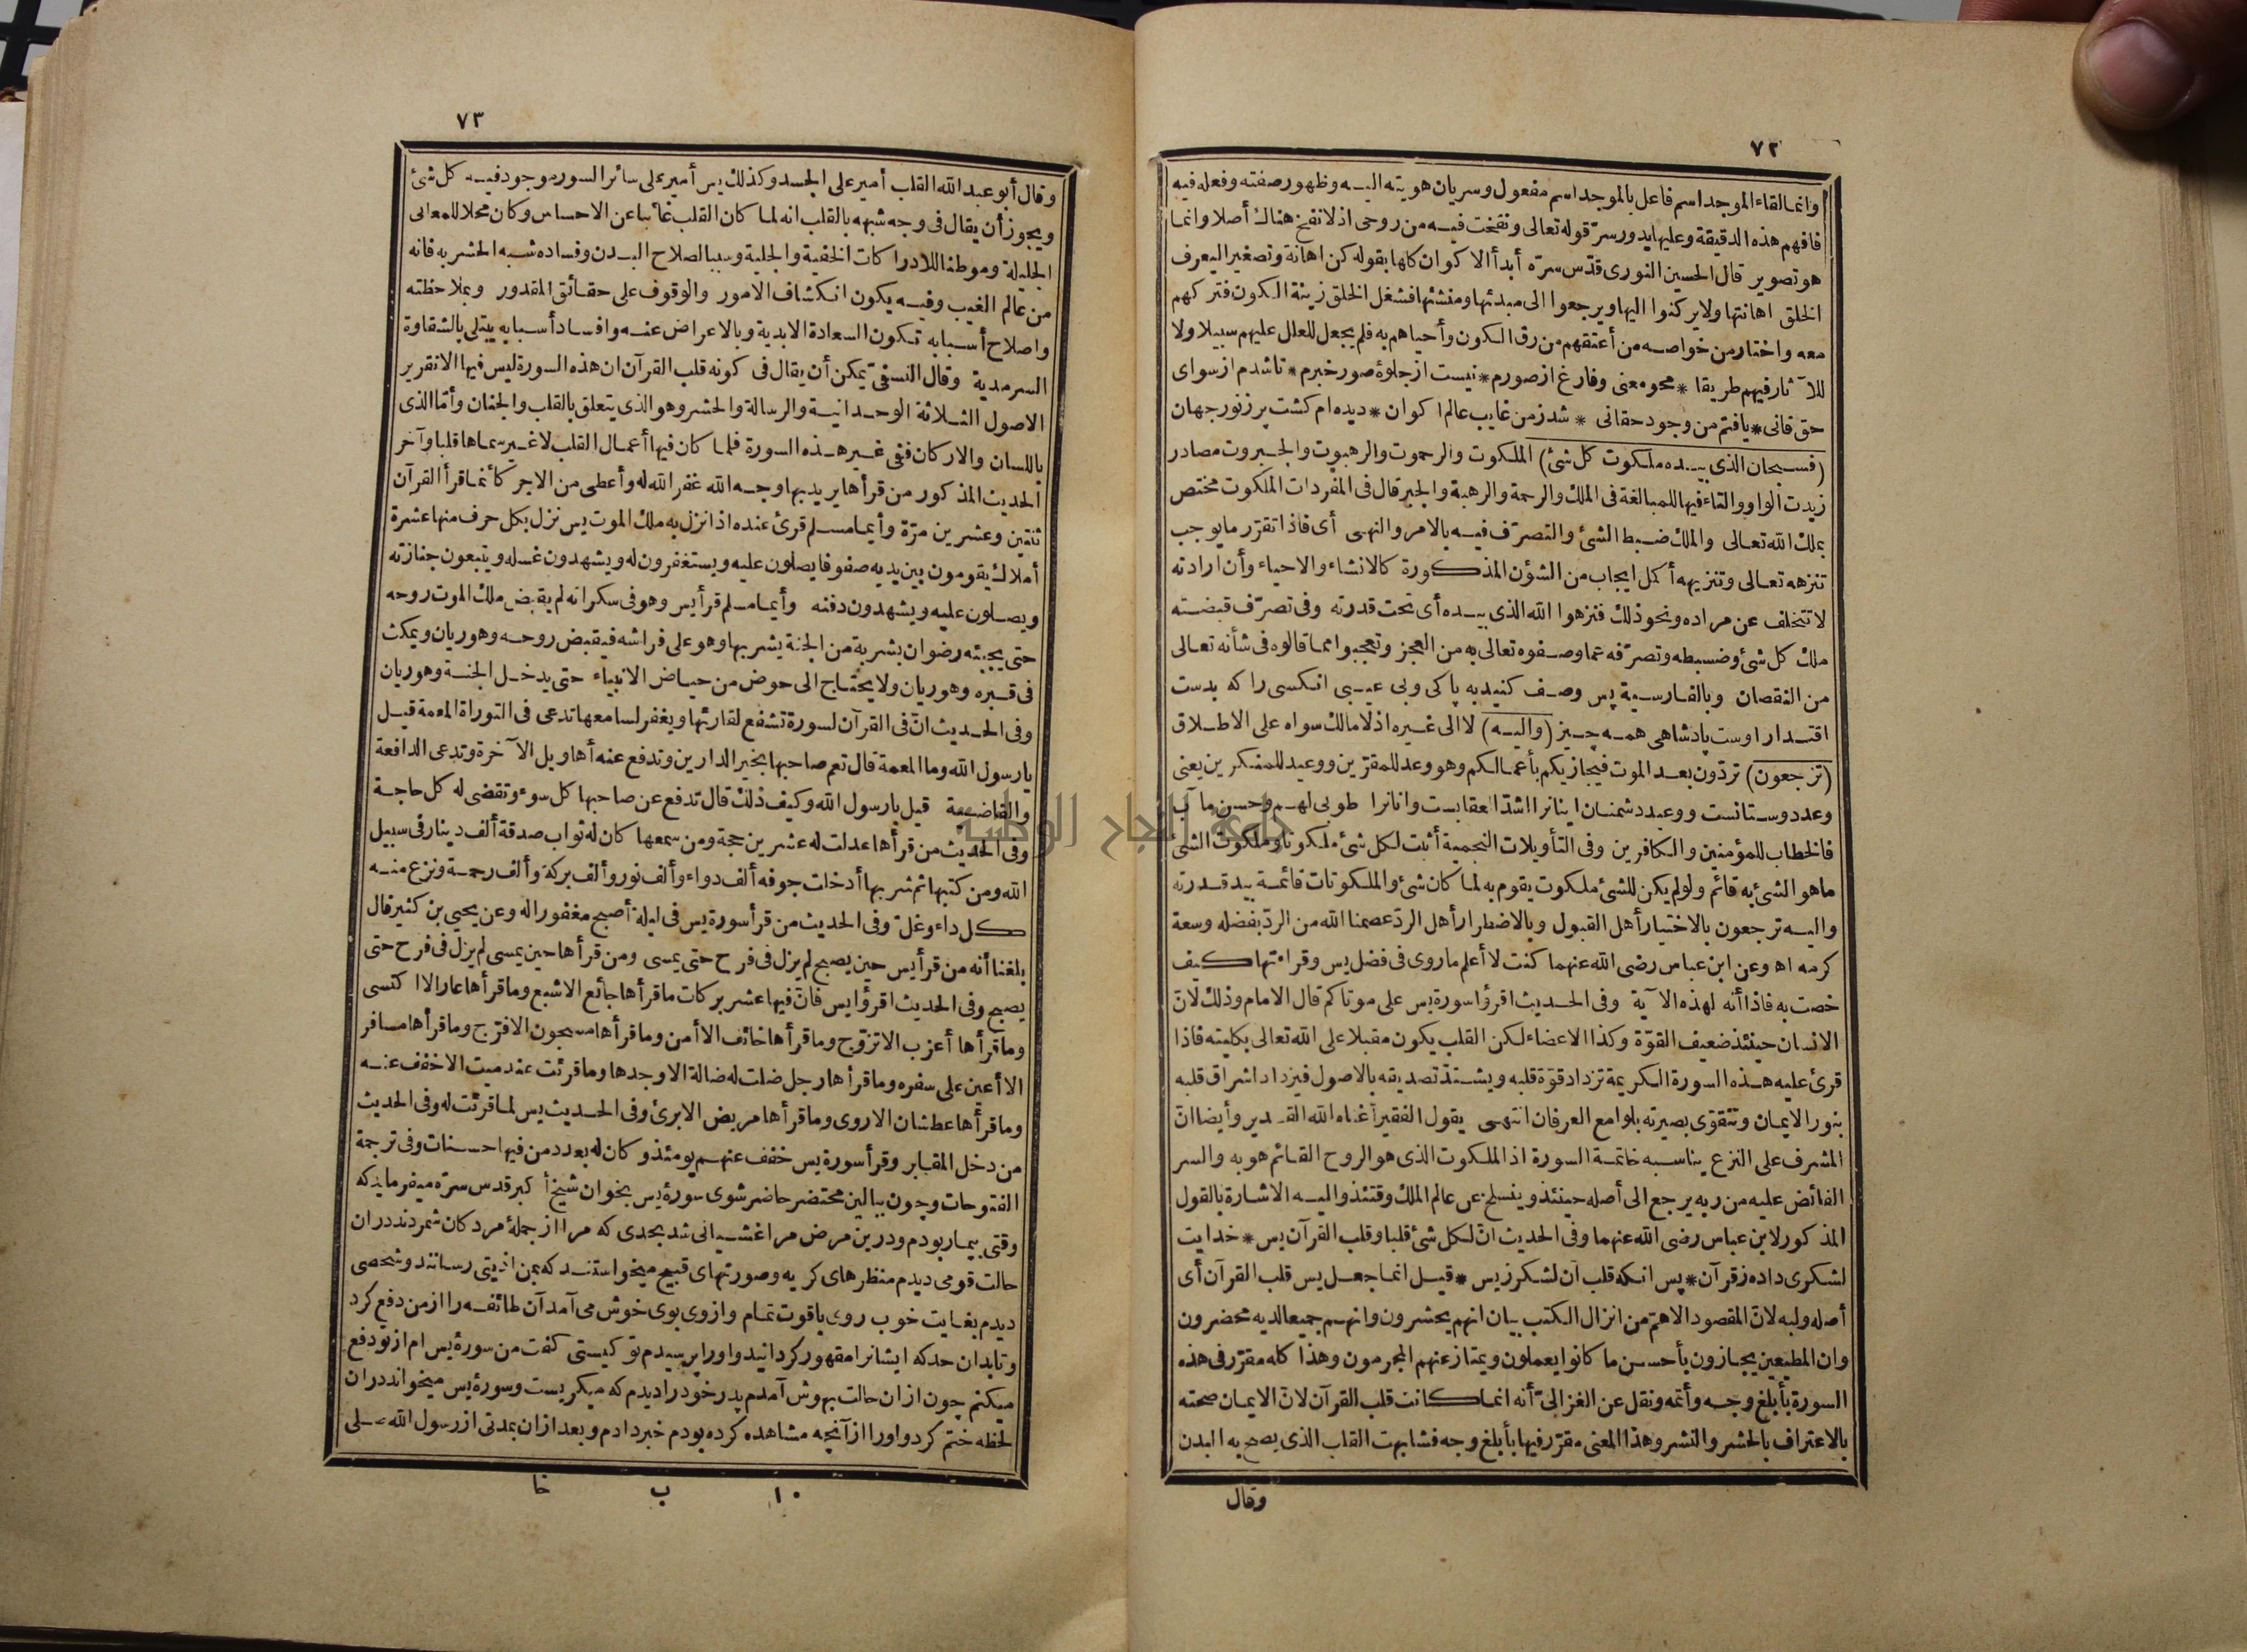 ٧٢
وانما القاء الموجد اسم فاعل بالموجد اسم مفعول وسريان هويته اليه وظهور صفته وفعله فيه
فافهم هذه الدقيقة وعليها يدور سرّ قوله تعالى ونفخت فيه من روحى اذ لا نفخ هناك أصلا وانما
هو تصوير قال الحسين النورى قدّس سرّه أبدأ الاكوان كلها بقوله كن اهانة وتصغيرا ليعرف
الخلق اهانتها ولا يركنوا اليها ويرجعوا الى مبدئها ومنشئها فشغل الخلق زينة الكون فتركهم
معه واختار من خواصه من أعتقهم من رق الكون وأحياهم به فلم يجعل للعلل عليهم سبيلا ولا
للآثار فيهم طريقا * محو معنى وفارغ از صورم * نيست از جلوهٔ صور خبرم * تا شدم از سواى
حق فانى * يافتم من وجود حقانى * شد ز من غايب عالم اكوان * ديده ام كشت پر ز نور جهان
(فسبحان الذى بيده ملكوت كل شئ) الملكوت والرحموت والرهبوت والجبروت مصادر
زيدت الواو والتاء فيها للمبالغة فى الملك والرحمة والرهبة والجبر قال فى المفردات الملكوت مختص
بملك الله تعالى والملك ضبط الشئ والتصرّف فيه بالامر والنهى أى فاذا تقرّر ما يوجب
تنزهه تعالى وتنزيهه أكمل ايجاب من الشؤن المذكورة كالانشاء والاحياء وأن ارادته
لا تتخلف عن مراده ونحو ذلك فنزهوا الله الذى بيده أى تحت قدرته وفى تصرّف قبضته
ملك كل شئ وضبطه وتصرّفه عما وصفوه تعالى به من العجز وتعجبوا مما قالوه فى شأنه تعالى
من النقصان وبالفارسية پس وصف كنيد به پاكى وبى عيبى انكسى را كه بدست
اقتدار اوست پادشاهى همه چيز (واليه) لا الى غيره اذ لا مالك سواه على الاطلاق
(ترجعون) تردّون بعد الموت فيجازيكم بأعمالكم وهو وعد للمقرّين ووعيد للمنكرين يعنى
وعد دوستانست ووعيد دشمنان اينانرا اشدّ العقابست وانانرا طوبى لهم وحسن مآب
فالخطاب للمؤمنين والكافرين وفى التأويلات النجمية أثبت لكل شئ ملكوتا وملكوت الشئ
ما هو الشئ به قائم ولو لم يكن للشئ ملكوت يقوم به لما كان شئ والملكوتات قائمة بيد قدرته
واليه ترجعون بالاختيار أهل القبول وبالاضطرار أهل الردّ عصمنا الله من الردّ بفضله وسعة
كرمه اه وعن ابن عباس رضى الله عنهما كنت لا أعلم ما روى فى فضل يس وقراءتها كيف
خصت به فاذا أنه لهذه الآية وفى الحديث اقرؤا سورة يس على موتاكم قال الامام وذلك لانّ
الانسان حينئذ ضعيف القوّة وكذا الاعضاء لكن القلب يكون مقبلا على الله تعالى بكليته فاذا
قرئ عليه هذه السورة الكريمة تزداد قوّة قلبه ويشتدّ تصديقه بالاصول فيزداد اشراق قلبه
بنور الايمان وتتقوّى بصيرته بلوامع العرفان انتهى يقول الفقير أغناه الله القدير وأيضا انّ
المشرف على النزع يناسبه خاتمة السورة اذ الملكوت الذى هو الروح القائم هو به والسر
الفائض عليه من ربه يرجع الى أصله حينئذ وينسلخ عن عالم الملك وقتئذ واليه الاشارة بالقول
المذكور لابن عباس رضى الله عنهما وفى الحديث انّ لكل شئ قلبا وقلب القرآن يس * خدايت
لشكرى داده ز قرآن * پس انكه قلب آن لشكر ز يس * قيل انما جعل يس قلب القرآن أى
أصله ولبه لانّ المقصود الاهمّ من انزال الكتب بيان انهم يحشرون وانهم جميعا لديه محضرون
وان المطيعين يجازون بأحسن ما كانوا يعملون ويمتاز عنهم المجرمون وهذا كله مقرّر فى هذه
السورة بأبلغ وجه وأتمه ونقل عن الغزالىّ أنه انما كانت قلب القرآن لانّ الايمان صحته
بالاعتراف بالحشر والنشر وهذا المعنى مقرّر فيها بأبلغ وجه فشابهت القلب الذى يصح به البدن
وقال
٧٣
وقال أبو عبد الله القلب أمير على الجسد وكذلك يس أمير على سائر السور موجود فيه كل شئ
ويجوز أن يقال فى وجه شبهه بالقلب انه لما كان القلب غائبا عن الاحساس وكان محلا للمعانى
الجليلة وموطنا للادراكات الخفية والجلية وسببا لصلاح البدن وفساده شبه الحشر به فانه
من عالم الغيب وفيه يكون انكشاف الامور والوقوف على حقائق المقدور وبملاحظته
واصلاح أسبابه تكون السعادة الابدية وبالاعراض عنه وافساد أسبابه يبتلى بالشقاوة
السرمدية وقال النسفىّ يمكن أن يقال فى كونه قلب القرآن ان هذه السورة ليس فيها الا تقرير
الاصول الثلاثة الوحدانية والرسالة والحشر وهو الذى يتعلق بالقلب والجنان وأمّا الذى
باللسان والاركان ففى غير هذه السورة فلما كان فيها أعمال القلب لا غير سماها قلبا وآخر
الحديث المذكور من قرأها يريد بها وجه الله غفر الله له وأعطى من الاجر كأنما قرأ القرآن
ثنتين وعشرين مرّة وأيما مسلم قرئ عنده اذا نزل به ملك الموت يس نزل بكل حرف منها عشرة
أملاك يقومون بين يديه صفوفا يصلون عليه ويستغفرون له ويشهدون غسله ويتبعون جنازته
ويصلون عليه ويشهدون دفنه وأيما مسلم قرأ يس وهو فى سكراته لم يقبض ملك الموت روحه
حتى يجيئه رضوان بشربة من الجنة يشربها وهو على فراشه فيقبض روحه وهو ريان ويمكث
فى قبره وهو ريان ولا يحتاج الى حوض من حياض الانبياء حتى يدخل الجنة وهو ريان
وفى الحديث انّ فى القرآن لسورة تشفع لقارئها ويغفر لسامعها تدعى فى التوراة المعمة قيل
يا رسول الله وما المعمة قال تعم صاحبها بخير الدارين وتدفع عنه أهاويل الآخرة وتدعى الدافعة
والقاضية قيل يا رسول الله وكيف ذلك قال تدفع عن صاحبها كل سوء وتقضى له كل حاجة
وفى الحديث من قرأها عدلت له عشرين حجة ومن سمعها كان له ثواب صدقة ألف دينار فى سبيل
الله ومن كتبها ثم شربها أدخلت جوفه ألف دواء وألف نور وألف بركة وألف رحمة ونزع منه
كل داء وغلّ وفى الحديث من قرأ سورة يس فى ليلة أصبح مغفورا له وعن يحيى بن كثير قال
بلغنا أنه من قرأ يس حين يصبح لم يزل فى فرح حتى يمسى ومن قرأها حين يمسى لم يزل فى فرح حتى
يصبح وفى الحديث اقرؤا يس فانّ فيها عشر بركات ما قرأها جائع الا شبع وما قرأها عار الا اكتسى
وما قرأها أعزب الا تزوّج وما قرأها خائف الا أمن وما قرأها مسجون الا فرّج وما قرأها مسافر
الا أعين على سفره وما قرأها رجل ضلت له ضالة الا وجدها وما قرئت عند ميت الا خفف عنه
وما قرأها عطشان الا روى وما قرأها مريض الا برئ وفى الحديث يس لما قرئت له وفى الحديث
من دخل المقابر وقرأ سورة يس خفف عنهم يومئذ وكان له بعدد من فيها حسنات وفى ترجمة
الفتوحات وچون ببالين محتضر حاضر شوى سورهٔ يس بخوان شيخ أكبر قدس سرّه ميفرمايد كه
وقتى بيمار بودم ودرين مرض مرا غشيانى شد بحدى كه مرا از جملهٔ مردكان شمردند دران
حالت قومى ديدم منظرهاى كريه وصورتهاى قبيح ميخواستند كه بمن اذيتى رسانند وشخصى
ديدم بغايت خوب روى باقوت تمام وازوى بوى خوش مى آمد آن طائفه را از من دفع كرد
وتابدان حد كه ايشانرا مقهور كردانيد واورا پرسيدم تو كيستى كفت من سورهٔ يس ام از تو دفع
ميكنم چون ازان حالت بهوش آمدم پدر خودرا ديدم كه ميكريست وسورهٔ يس ميخواند دران
لحظه ختم كرد واورا از آنچه مشاهده كرده بودم خبر دادم وبعد ازان بمدتى از رسول الله صلى
١٠ ب خا
جامعة النجاح الوطنية